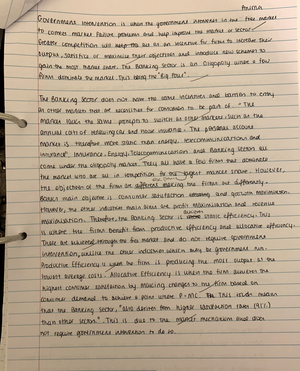 Anima
Government intervention is when the government intervenes in the free market
to correct market failure problems and help improve the market or sector.
Greater competition will help the act as an incentive for firms to increase their
output, satisfice or maximise their objectives and introduce new schemes to
gain the most market share. The Banking sector is an oligopoly where a few
firms dominate the market. This being the "Big Four".
The Banking Sector does not have the same incentives and barriers to entry
as other markets that are necessities for consumers to be part of. "The
market lack the same prompts to switch as other markets, such as the
annual cost of renewing car and house insurance. The personal account
market is therefore more static than energy, telecommunications and
insurance". Insurance, Energy, Telecommunication and Banking sectors all
come under the oligopoly market. They all have a few firms that dominate
the market who are all in competition to the largest market share. However,
the objectives of the firm are different making the firms act differently.
Banks main objective is consumer satisfaction and growth maximisation.
However, the other industries main aims are profit maximisation and revenue
maximisation. Therefore, the Banking Sector is static efficiency. This
is where the firms benefit from productive efficiency and allocative efficiency.
These are achieved through the free market and do not require government
intervention, unlike the other industries which may be government run.
Productive Efficiency is when the firm is producing the most output at the
lowest average costs. Allocative Efficiency is when the firm achieves the
highest consumer satisfaction by making changes to the firm based on
consumer demand to deliver a point where P=MC. This could mean
that the Banking Sector, "also derives from higher satisfaction rates (91%)
than other sectors". This is due to the market mechanism that does
not require government intervention to do so.